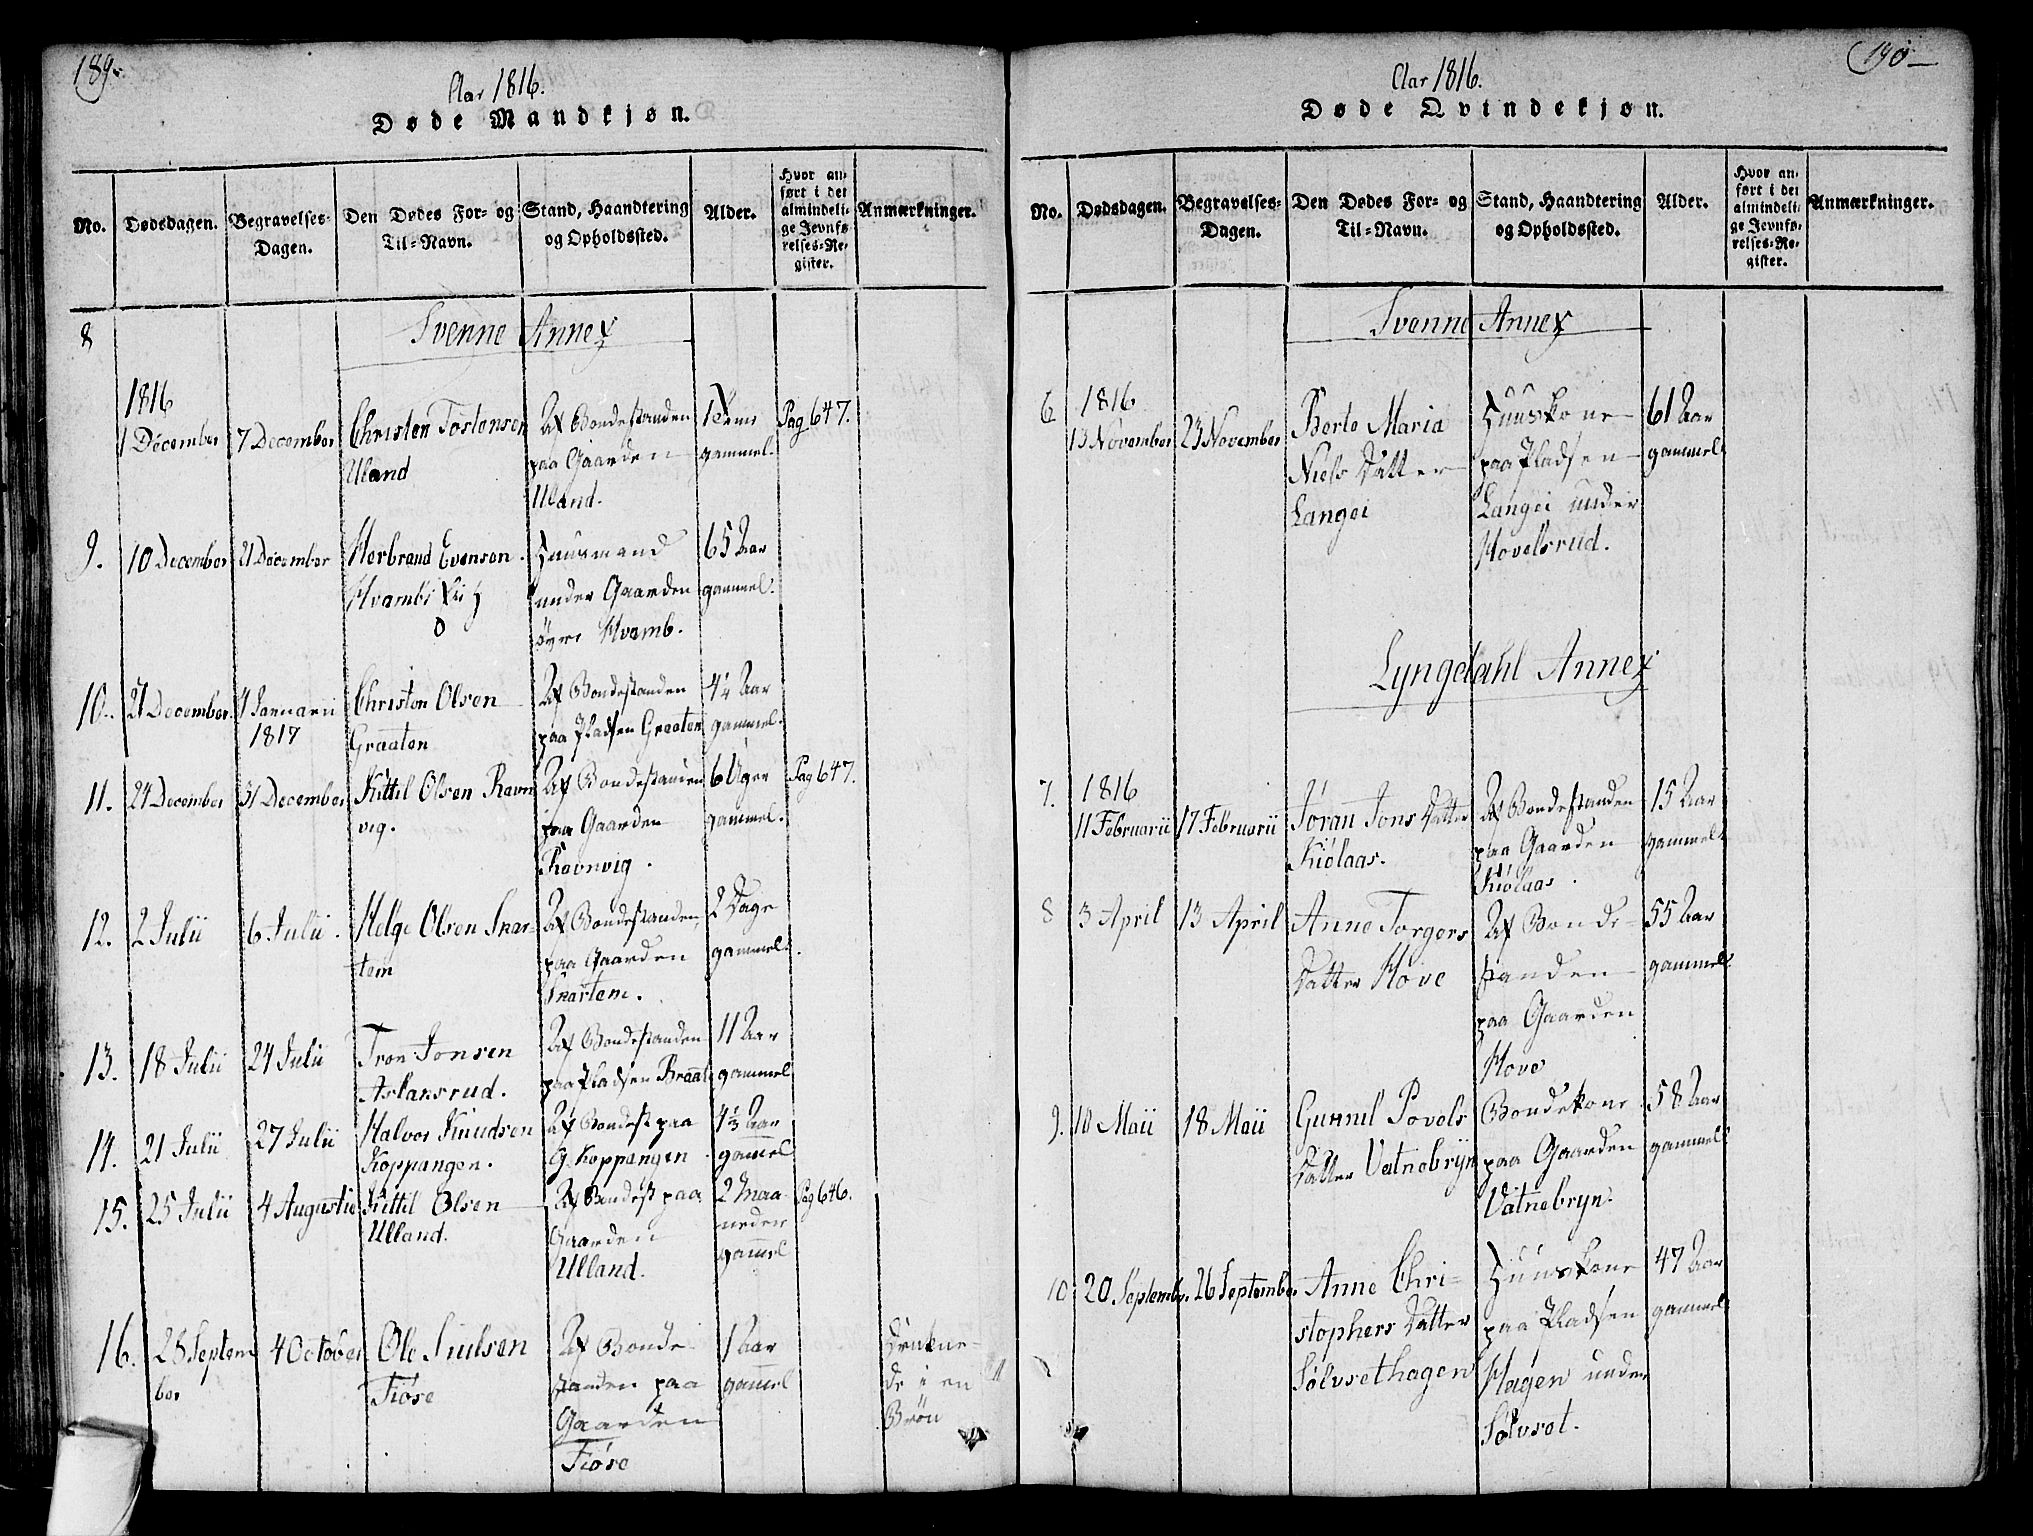 189.
Aar 1816.
Døde Mandkjøn.
No.
Dødsdagen.
Begravelses-
Dagen.
Den Dødes For- og
Til-Navn.
Stand, Haandtering
og Opholdssted.
Alder.
Hvor an-
ført i det
almindeli-
ge Jevnfø-
relses-Re-
gister.
Anmærkninger.
Svenne Annex
8
1816
1 December
7 December
Christen Tostensen
Uland
Af Bondestanden
paa Gaarden
Uland.
gammel.
Pag 647.
9.
10 December
21 December
Herbrand Evensen
Hvambs
Huusmand
under Gaarden
øvre Hvamb.
65 Aar
gammel.
10.
21 December.
4 Januarii
1817
Christen Olsen
Graaten
Af Bondestanden
paa Pladsen Graaten
4¼ Aar
gammel.
11.
24 December
31 December
Kittil Olsen Ravn
vig.
Af Bondestanden
paa Gaarden
Ravnvig.
6 Uger
gammel.
Pag 647.
12.
2 Julii
6 Julii.
Helge Olsen Snar-
tem
Af Bondestanden
paa Gaarden
Snartem.
2 Dage
gammel.
13.
18 Julii
24 Julii
Tron Jonsen
Aslansrud.
Af Bondestanden
paa Pladsen Braate
11 Aar
gammel
14.
21 Julii
27 Julii
Halvor Knudsen
Koppangen.
Af Bondest paa
G. Koppangen
Aar
gamel
15.
25 Julii
4 Augustii
Kittil Olsen
Ulland.
Af Bondest paa
Gaarden
Ulland.
2 Maa-
neder
gamel
Pag 646.
16.
28 Septem
ber
4 October
Ole
Fiøse
Af Bonde
standen paa
Gaarden
Fiøse
1 Aar
gamel
Drukne-
de i en
Brøn
190
Aar 1816.
Døde Qvindekjøn.
No.
Dødsdagen.
Begravelses-
Dagen.
Den Dødes For- og
Til-Navn.
Stand, Haandtering
og Opholdssted.
Alder.
Hvor an-
ført i det
almindeli-
ge Jevnfø-
relses-Re-
gister.
Anmærkninger.
Svenne Annex
6
1816
13 November
23 November
Berte Maria
Niels Datter
Langøi
Huuskone
paa Pladsen
Langøi under
Hovelsrud.
61 Aar
gammel
Lyngdahl Annex
7.
1816
11 Februarii
17 Februarii
Jøran Jons Datter
Kiølaas.
Af Bondestanden
paa Gaarden
Kiølaas.
15 Aar
gammel.
8
3 April
13 April
Anne Torgers
Datter Hove
Af Bonde-
standen
paa Gaarden
Hove
55 Aar
gammel
9.
10 Maii
18 Maii
Gunnil Povels
Datter Vatnebryn
Bondekone
paa Gaarden
Vatnebryn.
58 Aar
gammel
10
20 Septembr.
26 September
Anne Chri-
stophers Datter
Sølvsethagen
Huuskone
paa Pladsen
Hagen under
Sølvset.
47 Aar
gammel